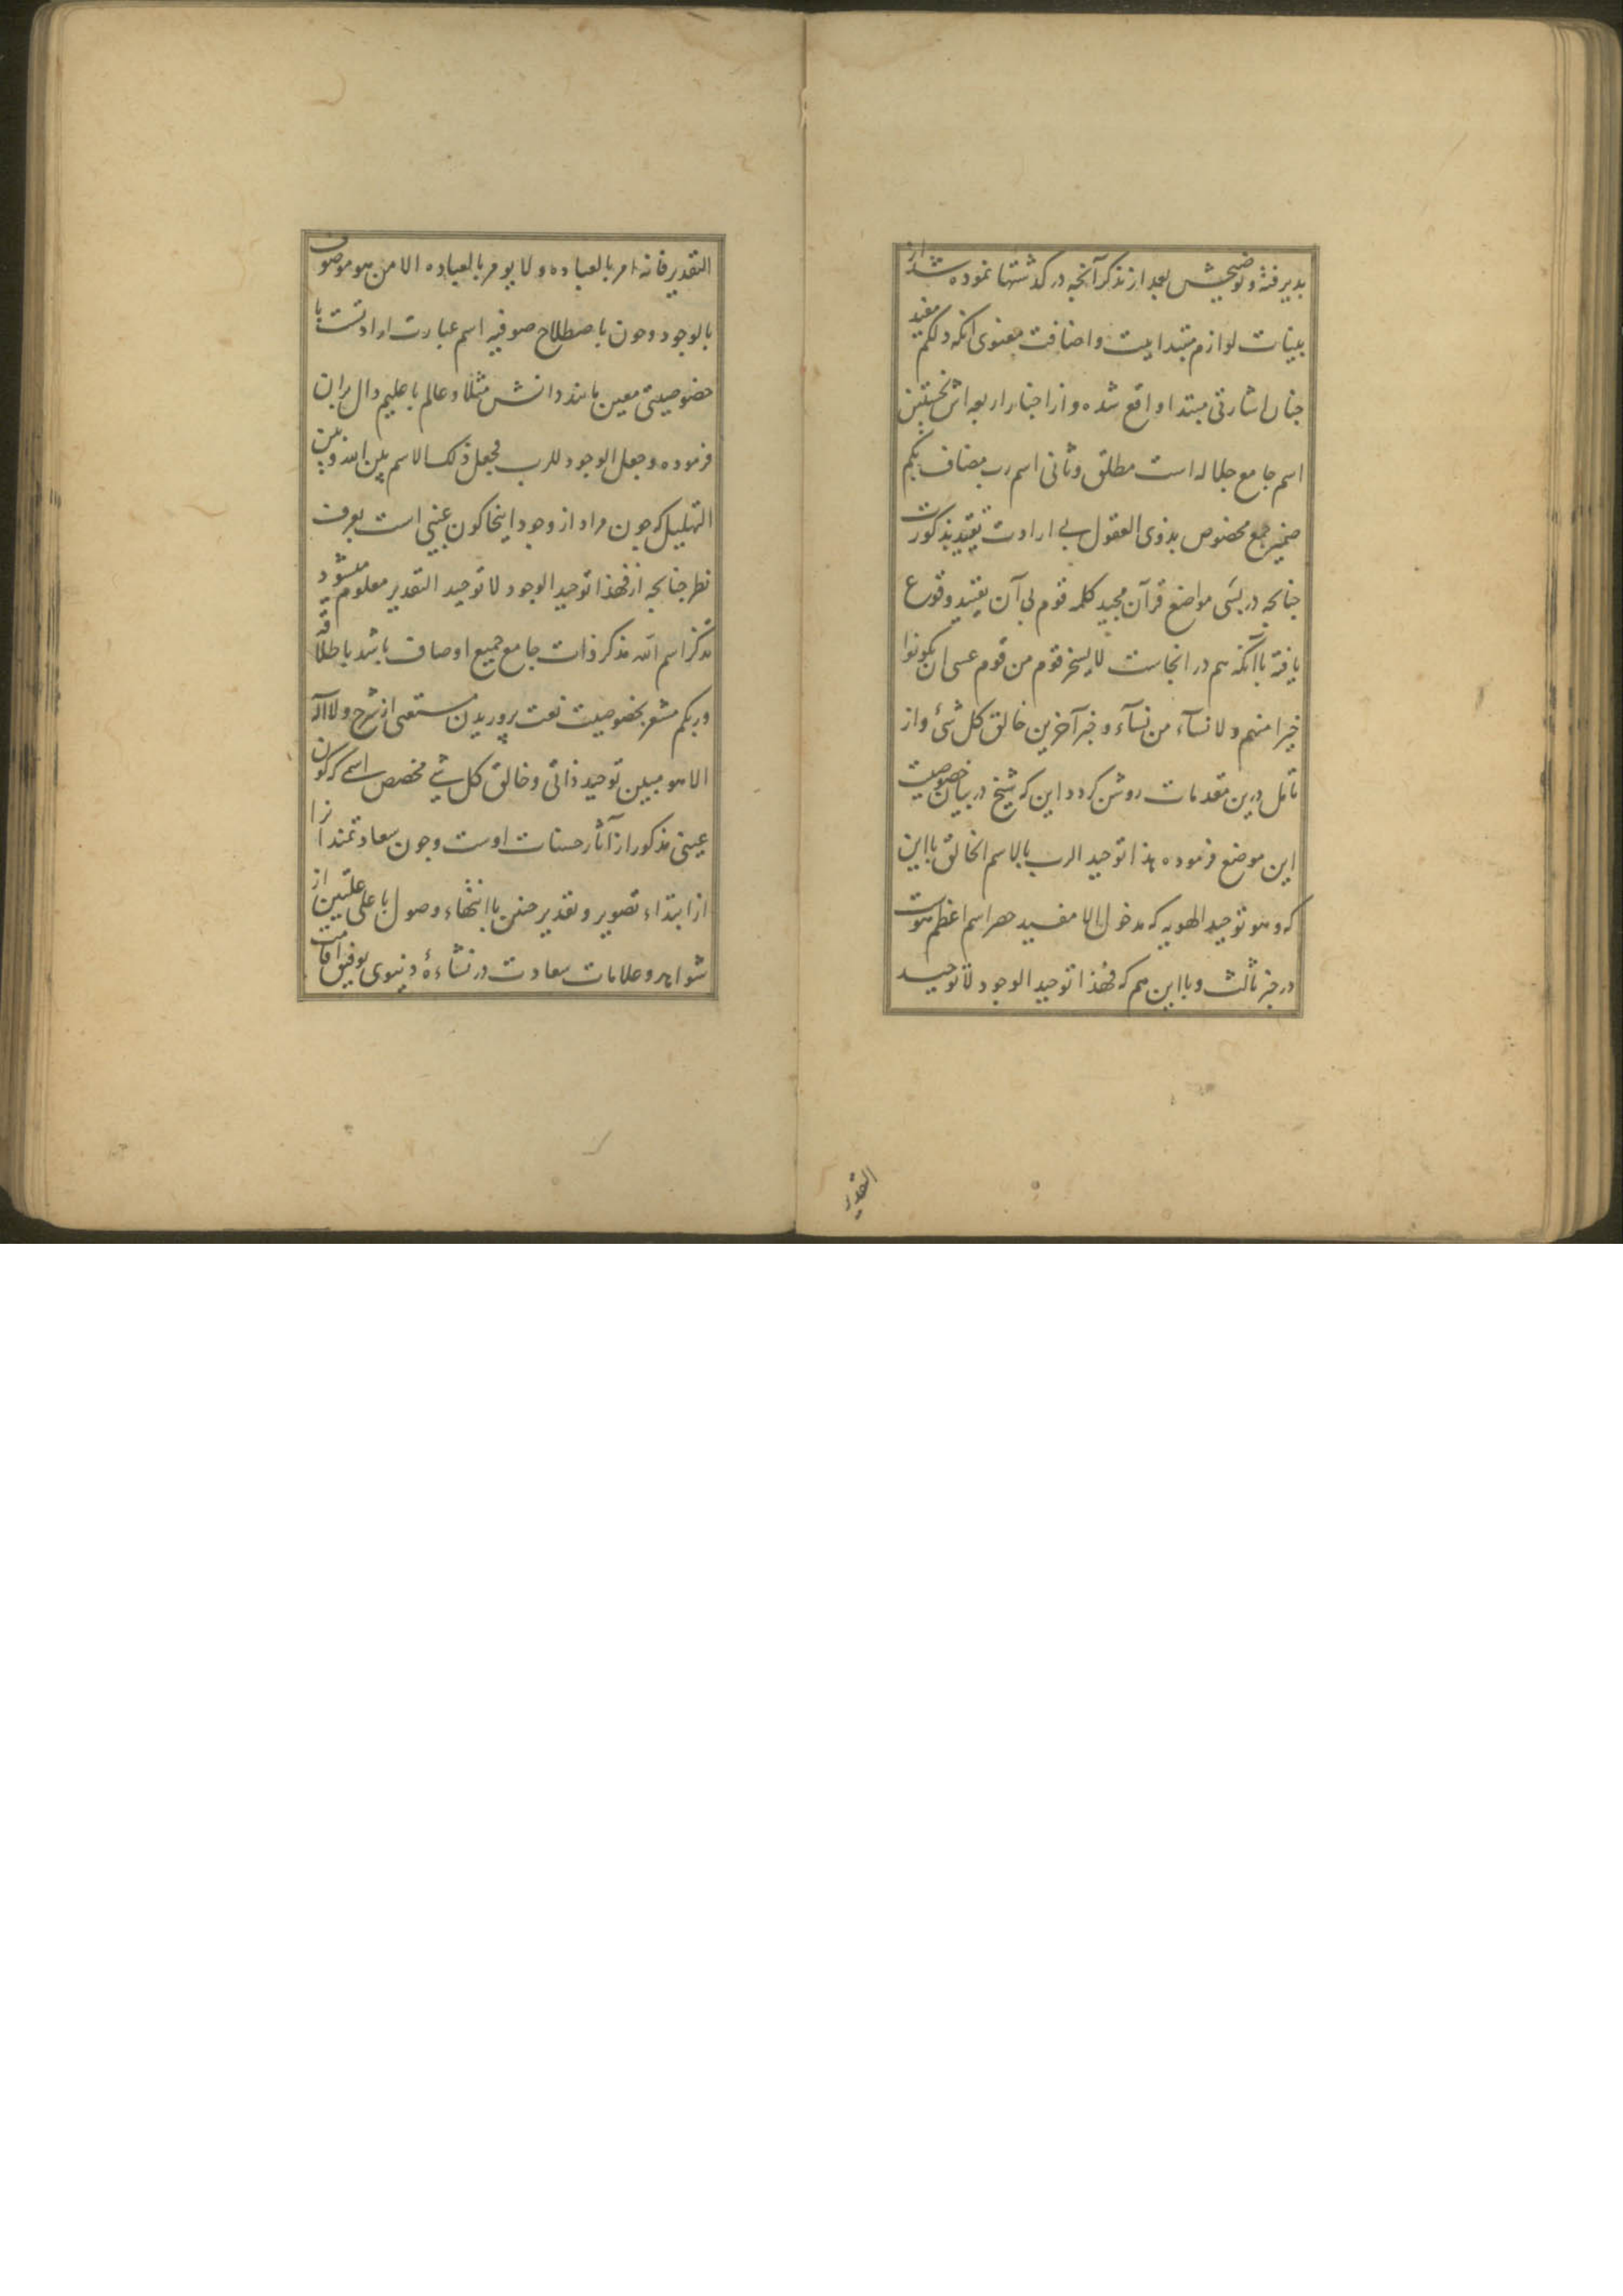 بدیرفته و توضیحش بعد از تذکر آنچه در کدشتها نموده شد از
بینات لوازم مبتداییت و اضافت معنوی آنکه ذلکم مفید
جنان اشارتی مبتدا واقع شده و از اخبار اربعه اش نخستین
اسم جامع جلاله است مطلق و ثانی اسم رب مضاف بکم
ضمیر جمع مخصوص بذوی العقول بی ارادت تقیید بذکورت
جنانجه در بسی مواضع قرآن مجید کلمه قوم بی آن تقیید وقوع
یافته با آنکه هم در انجاست لا یسخر قوم من قوم عسی ان یکونوا
خیرا منهم ولا نسآء من نسآء و خبر آخرین خالق کل شئ و از
تامل درین مقدمات روشن کردد این که شیخ در بیان خصوصیت
این موضع فرموده هذا توحید الرب بالاسم الخالق با این
که و هو توحید الهویه که مدخول الا مفید حصر اسم اعظم هوست
در خبر ثالث و با این هم که فهذا توحید الوجود لا توحید
التقدیر
التقدیر فانه امر بالعباده ولا یومر بالعباده الا من هو موصوف
بالوجود و جون باصطلاح صوفیه اسم عبارت از ذاتست با
خصوصیتی معین مانند دانش مثلا و عالم یا علیم دال بران
فرموده و جعل الوجود للرب فجعل ذلک الاسم بین الله و بین
التهلیل که جون مراد از وجود اینجا کون عینی است بعرف
نظر جنانجه از فهذا توحید الوجود لا توحید التقدیر معلوم میشود
تذکر اسم الله مذکر ذات جامع جمیع اوصاف باشد باطلاقه
و ربکم مشعر بخصوصیت نعت پروریدن مستغنی از شرح و لا اله
الا هو مبین توحید ذاتی و خالق کل شی مخصص اسمی که کون
عینی مذکور از آثار حسنات اوست و جون سعادتمند انرا
از ابتداء تصویر و تقدیر جنین با انتهاء وصول با علی علیین از
شواهد و علامات سعادت در نشاءهٔ دنیوی توفیق اقامت